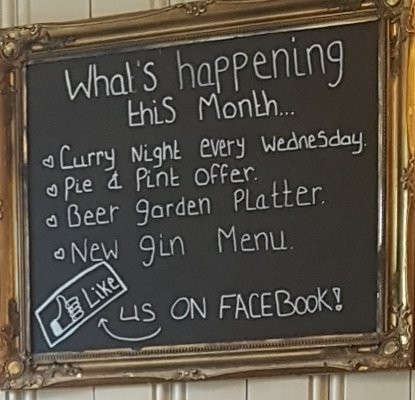 What's happening
this Month...
Curry Night every Wednesday.
Pie & Pint Offer.
Beer garden Platter.
New gin Menu.
Like us ON FACEBOOK!